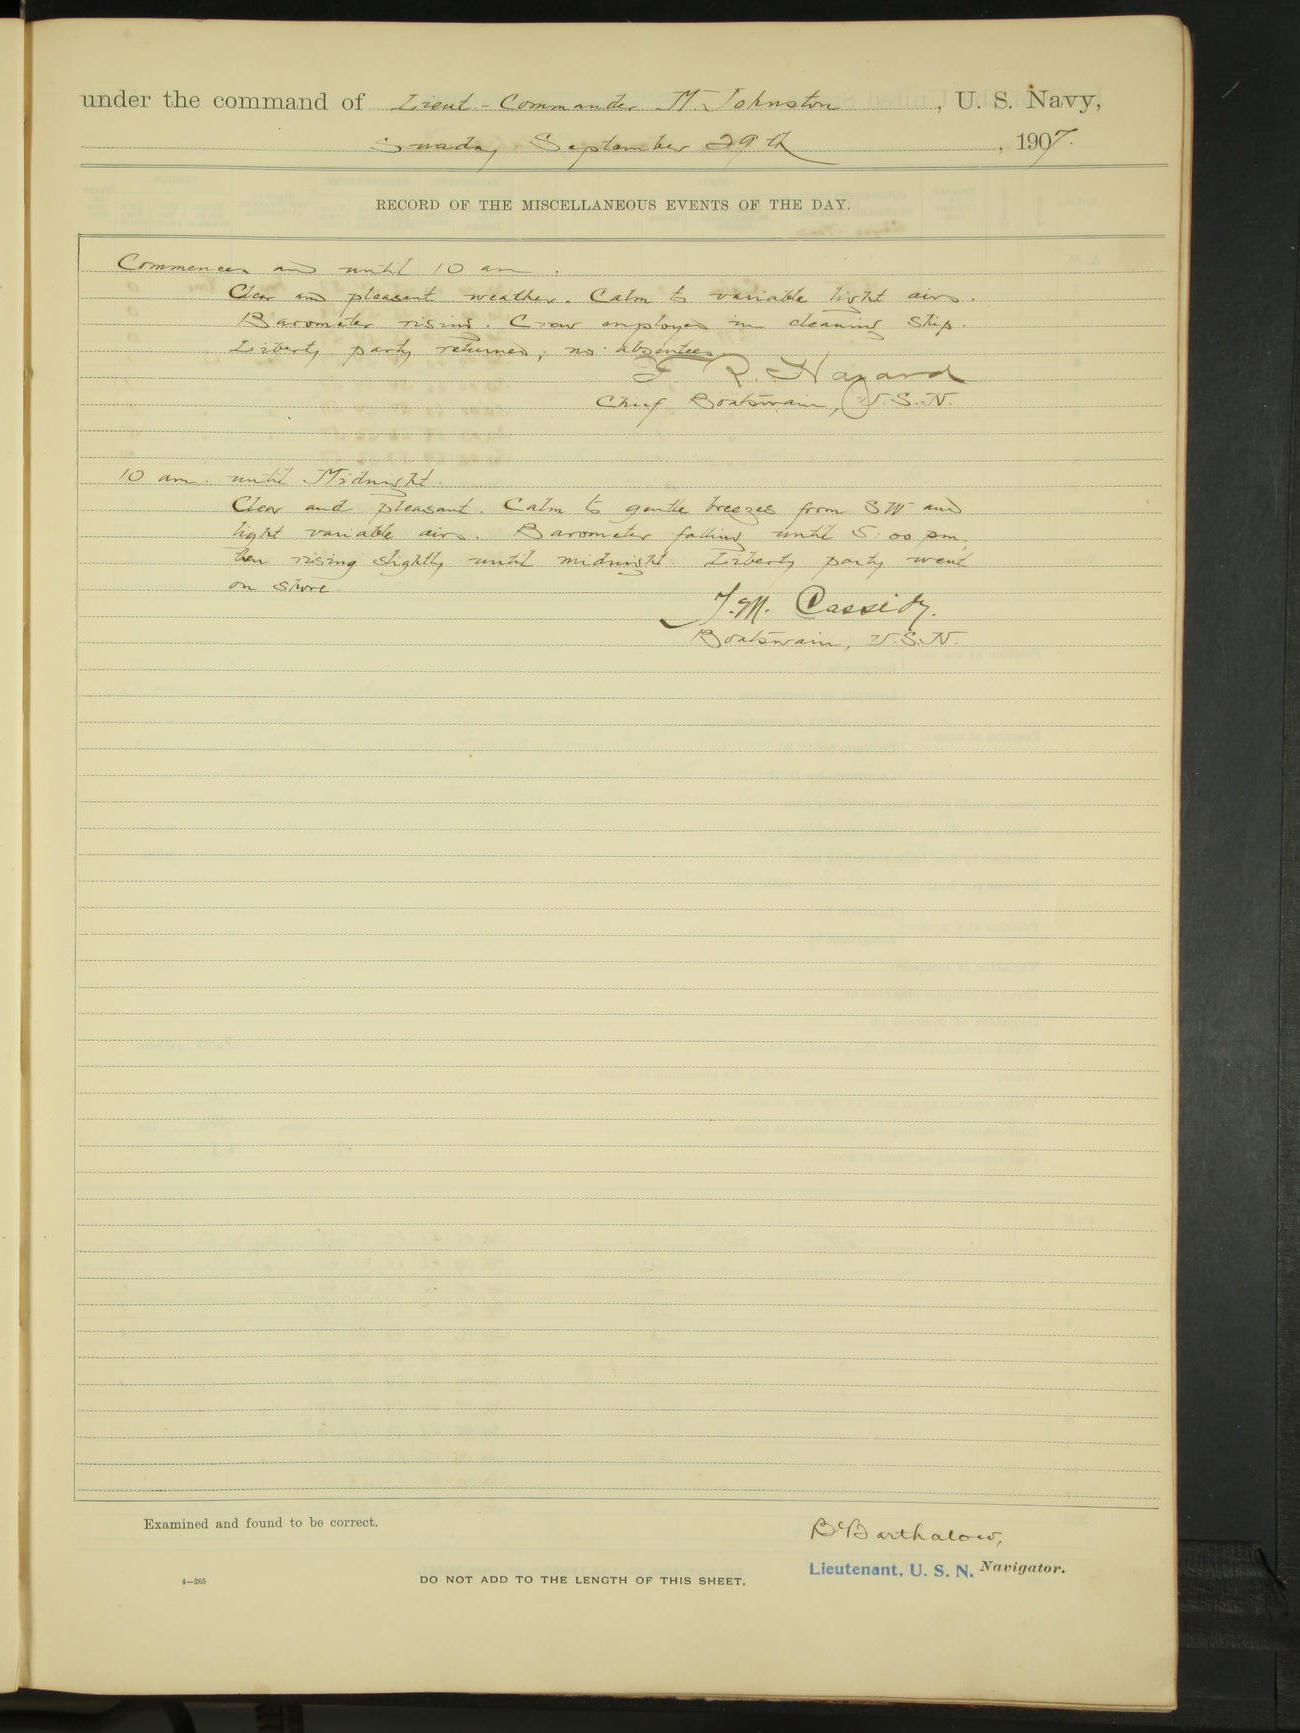 under the command of Lieut-Commander M. Johnston, U. S. Navy,
Sunday September 29th, 1907.
RECORD OF THE MISCELLANEOUS EVENTS OF THE DAY.
Commences and until 10 am.
Clear and pleasant weather. Calm to variable light airs.
Barometer rising. Crew employed in cleaning ship.
Liberty party returned, no absentees.
R. Hazard
Chief Boatswain, U.S.N.
10 am. until Midnight.
Clear and pleasant. Calm to gentle breezes from SW and
light variable airs. Barometer falling until 5:00 pm,
then rising slightly until midnight. Liberty party went
on shore.
J.M. Cassidy.
Boatswain, U.S.N.
Examined and found to be correct.
Barthalow,
Lieutenant, U. S. N. Navigator.
4—265
DO NOT ADD TO THE LENGTH OF THIS SHEET.